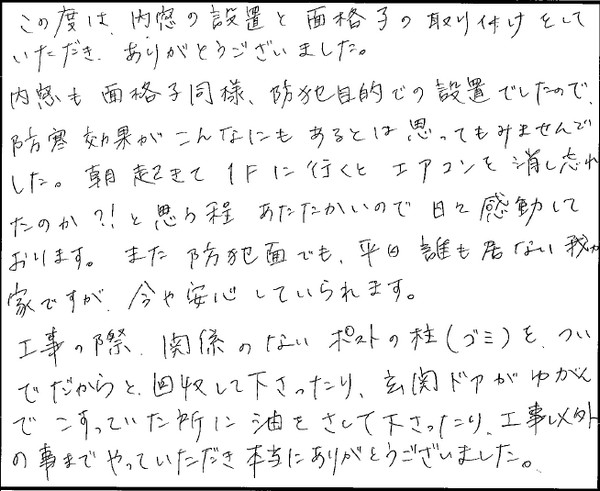 この度は、内窓の設置と面格子の取り付けをして
いただき、ありがとうございました。
内窓も面格子同様、防犯目的での設置でしたので、
防寒効果がこんなにもあるとは思ってもみませんで
した。朝起きて1Fに行くとエアコンを消し忘れ
たのか?!と思う程あたたかいので日々感動して
おります。また防犯面でも、平日誰も居ない我が
家ですが、今や安心していられます。
工事の際、関係のないポストの柱(ゴミ)を、つい
でだからと、回収して下さったり、玄関ドアがゆがん
でこすっていた所に油をさして下さったり、工事以外
の事までやっていただき本当にありがとうございました。